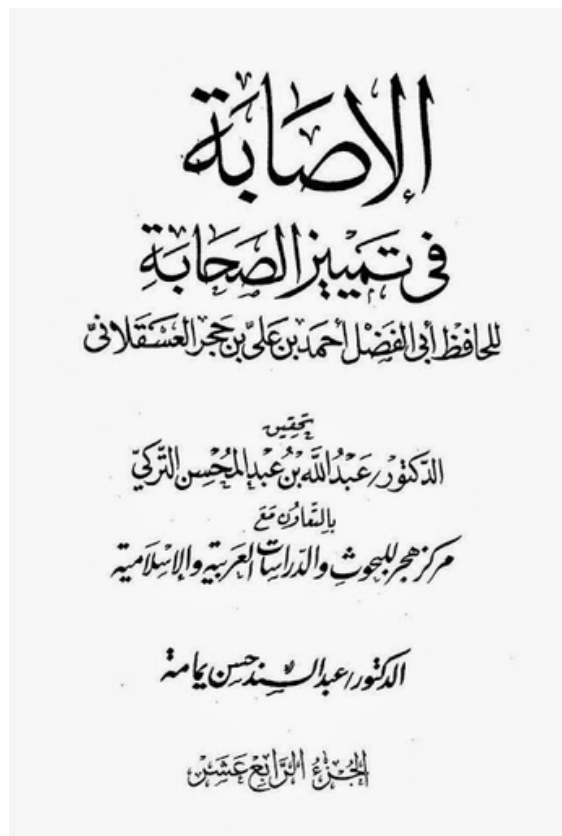 الإصابة
في تمييز الصحابة
للحافظ أبي الفضل أحمد بن علي بن حجر العسقلاني
تحقيق
الدكتور/عبد الله بن عبد المحسن التركي
بالتعاون مع
مركز هجر للبحوث والدراسات العربية والإسلامية
الدكتور/عبد السند حسن يمامة
الجزء الرابع عشر